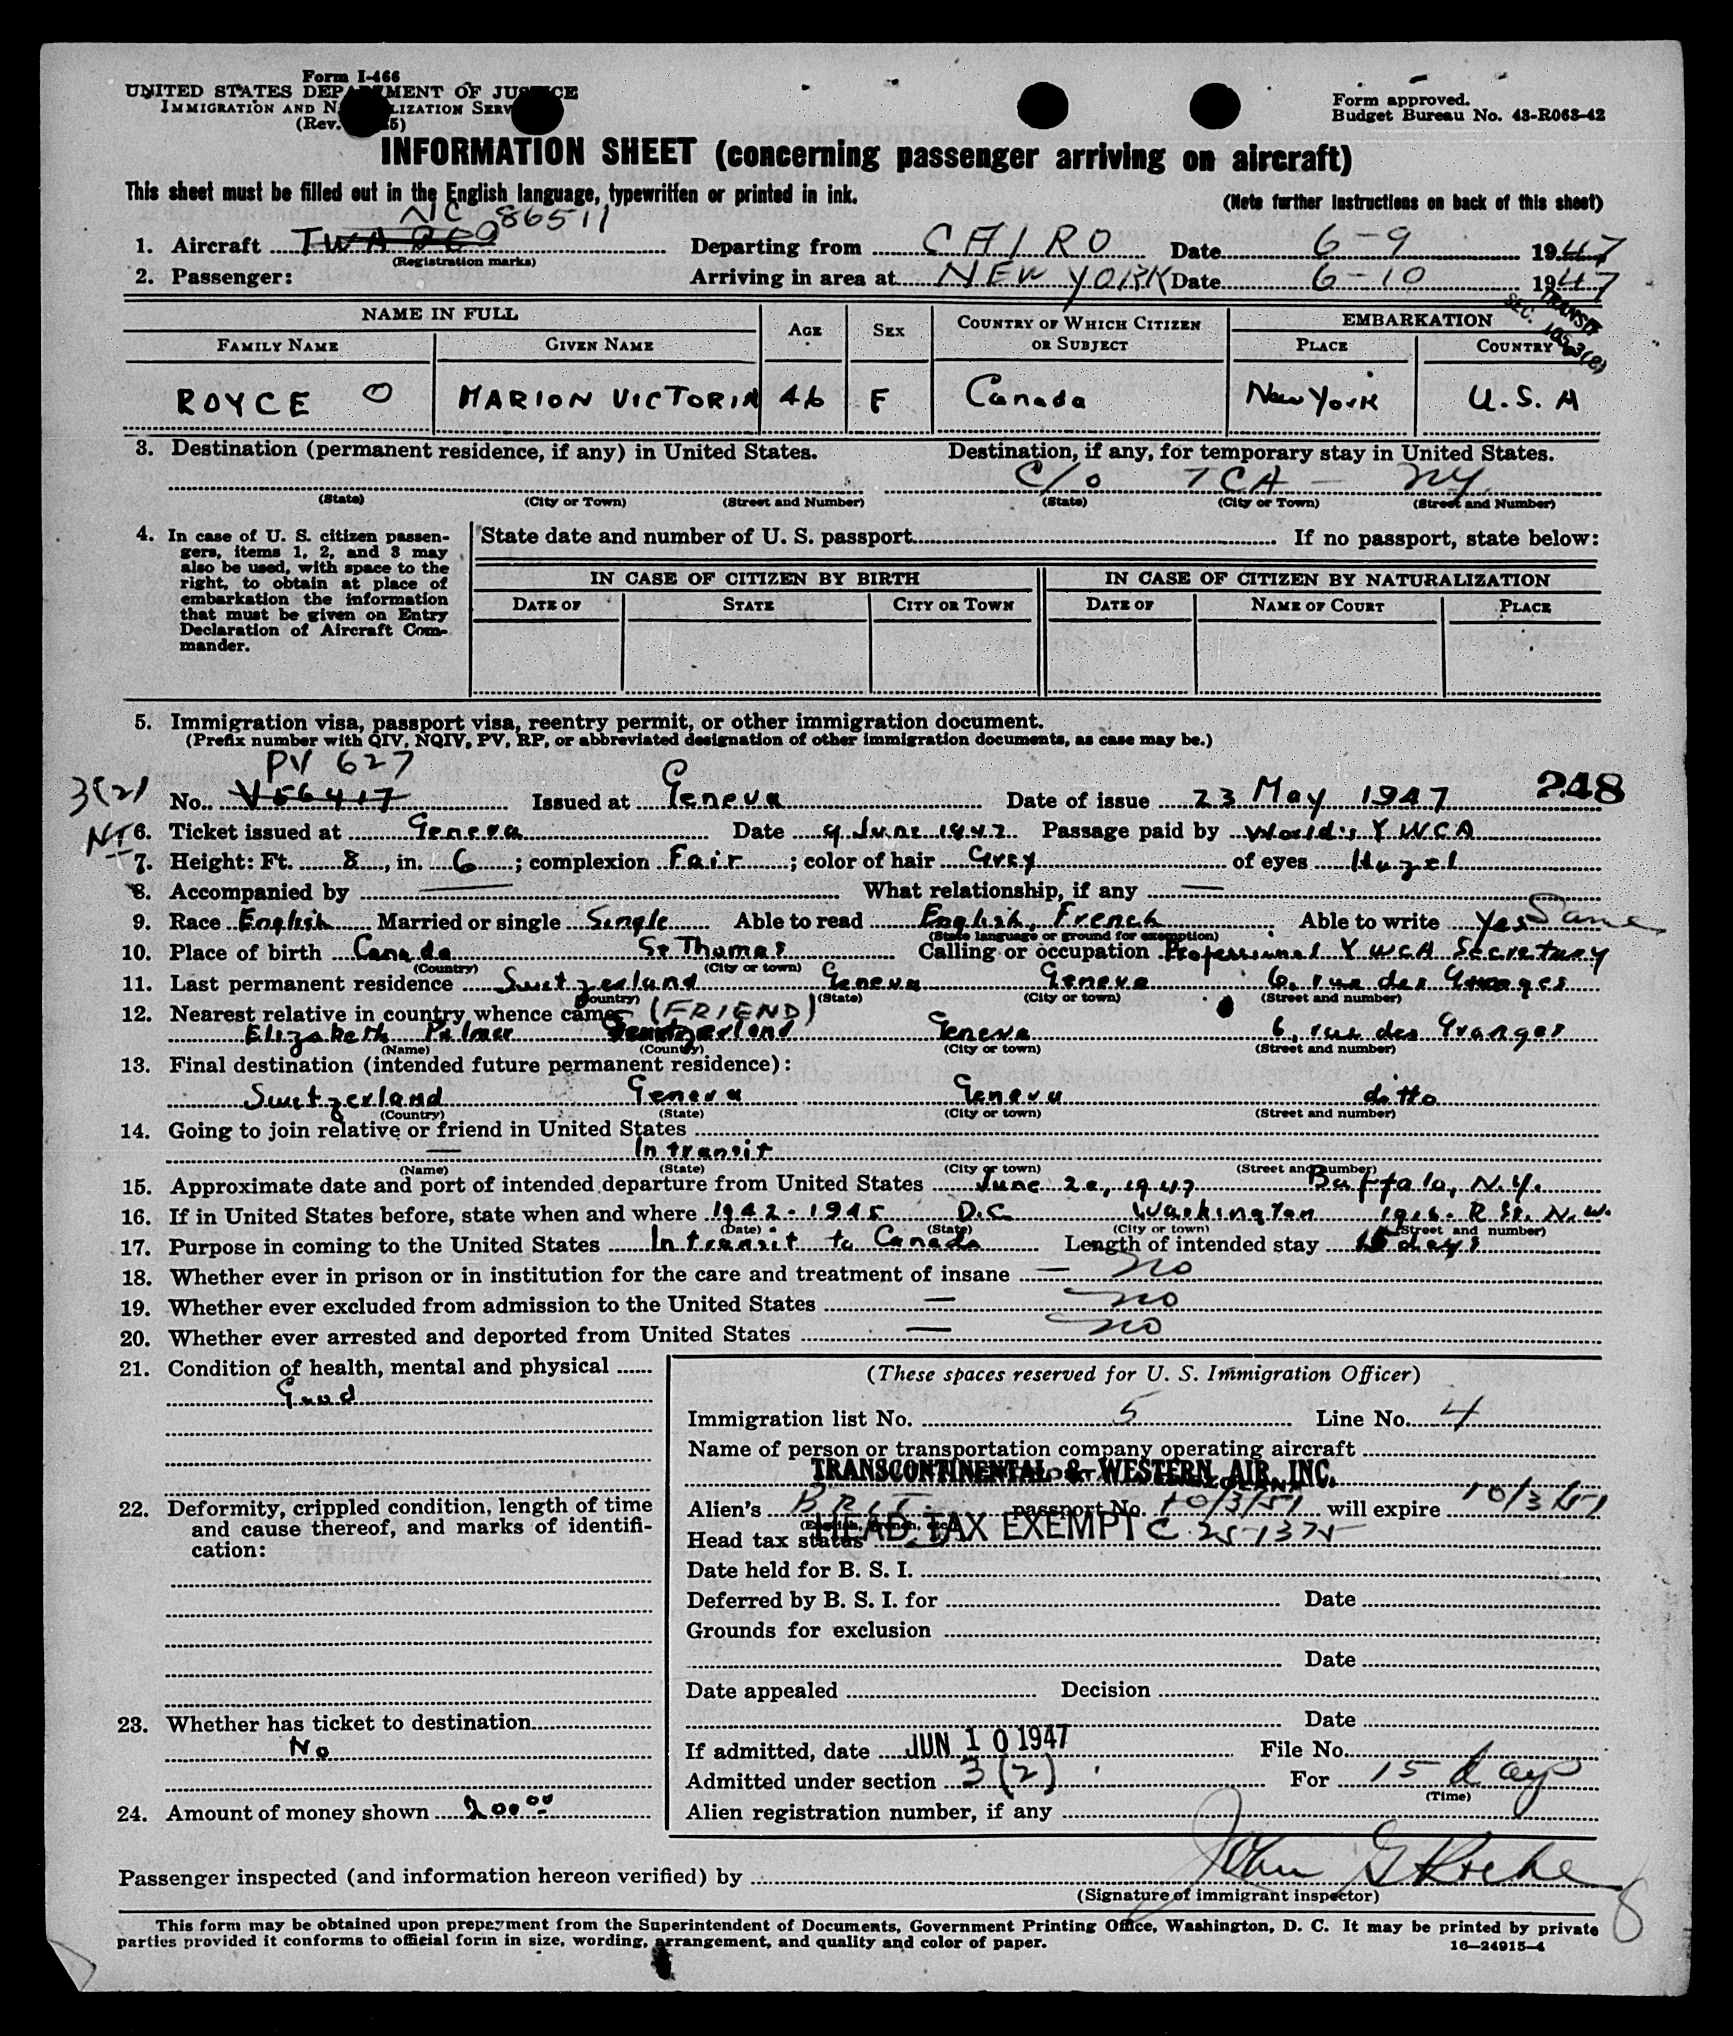 Form I-466
UNITED STATES DEPARTMENT OF JUSTICE
IMMIGRATION AND NATURALIZATION SERV
(Rev. 5)
Form approved.
Budget Bureau No. 43-R068-42
INFORMATION SHEET (concerning passenger arriving on aircraft)
This sheet must be filled out in the English language, typewritten or printed in ink.
(Note further instructions on back of this sheet)
NC 86511
1. Aircraft TWA Departing from CAIRO Date 6-9 1947
(Registration marks)
2. Passenger: Arriving in area at NEW YORK Date 6-10 1947
TRANSIT
SEC.
NAME IN FULL AGE SEX COUNTRY OF WHICH CITIZEN OR SUBJECT EMBARKATION
FAMILY NAME GIVEN NAME PLACE COUNTRY
ROYCE O MARION VICTORIA 46 F Canada New York U.S.A
3. Destination (permanent residence, if any) in United States. Destination, if any, for temporary stay in United States.
C/o TCA - NY
(State) (City or Town) (Street and Number) (State) (City or Town) (Street and Number)
4. In case of U. S. citizen passengers, items 1, 2, and 3 may also be used, with space to the right, to obtain at place of embarkation the information that must be given on Entry Declaration of Aircraft Commander.
State date and number of U. S. passport If no passport, state below:
IN CASE OF CITIZEN BY BIRTH IN CASE OF CITIZEN BY NATURALIZATION
DATE OF STATE CITY OR TOWN DATE OF NAME OF COURT PLACE
5. Immigration visa, passport visa, reentry permit, or other immigration document.
(Prefix number with QIV, NQIV, PV, RP, or abbreviated designation of other immigration documents, as case may be.)
PV 627
3(2) No. V56417 Issued at Geneva Date of issue 23 May 1947 248
6. Ticket issued at Geneva Date 9 June 1947 Passage paid by World's YWCA
7. Height: Ft. 8, in. 6; complexion Fair; color of hair Grey of eyes Hazel
8. Accompanied by — What relationship, if any —
9. Race English Married or single Single Able to read English, French Able to write Yes Same
(State language or ground for exemption)
10. Place of birth Canada St Thomas Calling or occupation Professional YWCA Secretary
(Country) (City or town)
11. Last permanent residence Switzerland Geneva Geneva 6, rue des Granges
(Country) (State) (City or town) (Street and number)
12. Nearest relative in country whence came (FRIEND)
Elizabeth Palmer Switzerland Geneva 6, rue des Granges
(Name) (Country) (City or town) (Street and number)
13. Final destination (intended future permanent residence):
Switzerland Geneva Geneva ditto
(Country) (State) (City or town) (Street and number)
14. Going to join relative or friend in United States
— In transit
(Name) (State) (City or town) (Street and number)
15. Approximate date and port of intended departure from United States June 20, 1947 Buffalo, N.Y.
16. If in United States before, state when and where 1942-1945 D.C. Washington 1916 R St. N.W.
(Date) (State) (City or town) (Street and number)
17. Purpose in coming to the United States In transit to Canada Length of intended stay 15 days
18. Whether ever in prison or in institution for the care and treatment of insane — no
19. Whether ever excluded from admission to the United States — no
20. Whether ever arrested and deported from United States — no
21. Condition of health, mental and physical
Good
22. Deformity, crippled condition, length of time and cause thereof, and marks of identification:
23. Whether has ticket to destination
No
24. Amount of money shown 200.00
(These spaces reserved for U. S. Immigration Officer)
Immigration list No. 5 Line No. 4
Name of person or transportation company operating aircraft
TRANSCONTINENTAL & WESTERN AIR, INC.
Alien's BRIT. passport No. 10/3/51 will expire 10/3/51
Head tax status HEAD TAX EXEMPT C 25-1375
Date held for B. S. I.
Deferred by B. S. I. for Date
Grounds for exclusion
Date
Date appealed Decision
Date
If admitted, date JUN 10 1947 File No.
Admitted under section 3(2) For 15 days
(Time)
Alien registration number, if any
Passenger inspected (and information hereon verified) by
(Signature of immigrant inspector)
This form may be obtained upon prepayment from the Superintendent of Documents, Government Printing Office, Washington, D. C. It may be printed by private
parties provided it conforms to official form in size, wording, arrangement, and quality and color of paper.
16—24915-4